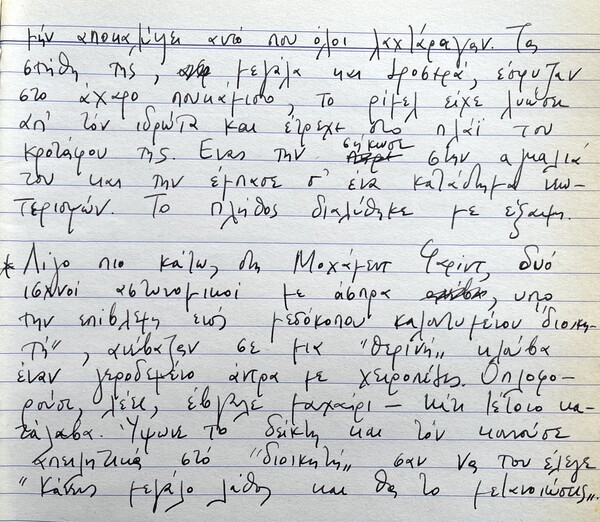 μην αποκαλύψει αυτό που όλοι λαχτάραγαν. Τα
στήθη της, μεγάλα και δροσερά, έσφυζαν
στο άχαρο πουκάμισο, το ρίμελ είχε λυώσει
απ' τον ιδρώτα και έτρεχε στο πλάϊ του
κροτάφου της. Ένας την σήκωσε στην αγκαλιά
του και την έμπασε σ' ένα κατάστημα κω-
τερισμών. Το πλήθος διαλύθηκε με έξαψη.
* Λίγο πιο κάτω, στη Μοχάμεντ Φαρίντ, δυό
ισχνοί αστυνομικοί με άσπρα, υπό
την επίβλεψη ενός μεσόκοπου καλοντυμένου "διοικη-
τή", ανέβαζαν σε μια "θερινή" κλούβα
έναν γεροδεμένο άντρα με χειροπέδες. Οπλοφο-
ρούσε, λέει, έβγαλε μαχαίρι – κάτι τέτοιο κα-
τάλαβα. Ύψωνε το δείκτη και τον κουνούσε
απειλητικά στο "διοικητή" σαν να του έλεγε
"κάνεις μεγάλο λάθος και θα το μετανοιώσεις".